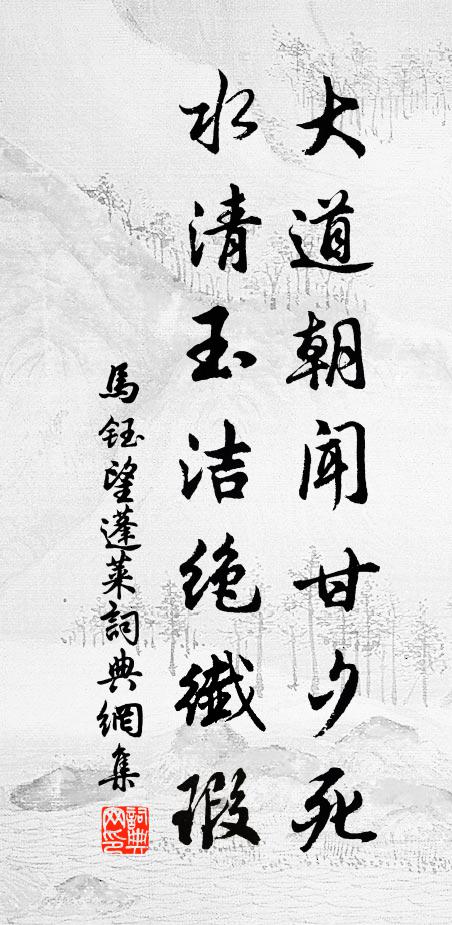 大道朝闻甘夕死
水清玉洁绝纖瑕
馬鈺望蓬萊詞典網集
詞典网印